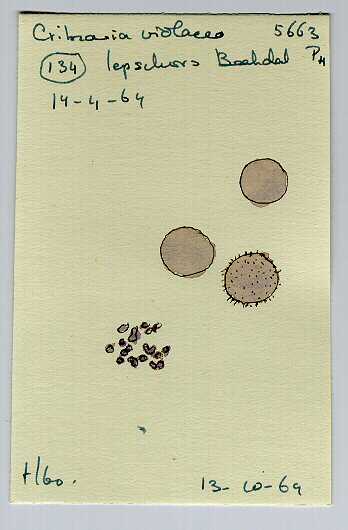 Cribraria violacea 5663
134 Iepschors Boshdal PH
14-4-64
H/60.
13-10-64